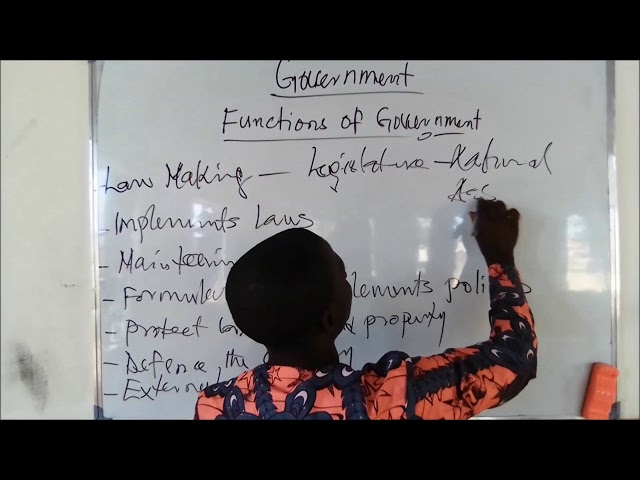 Government
Functions of Government
- Law Making - Legislature - National
Ass
- Implements Laws
- Maintain
- Formula lements polic s
- Protect property
- Defence the y
- Extern